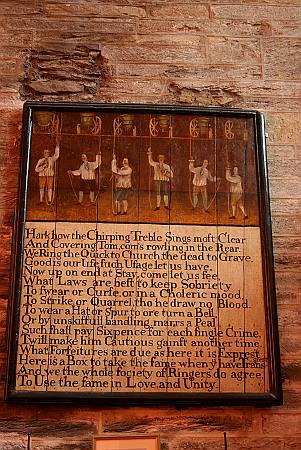 Hark how the Chirping Treble Sings most Clear
And Covering Tom com's rowling in the Rear.
We Ring the Quick to Church, the dead to Grave,
Good is our life such Usage let us have,
Now up on end at Stay, come let us see,
What Laws are best to keep Sobriety
To swear or Curse, or in a Choleric mood,
To Strike, or Quarrel, tho he draw no Blood.
To wear a Hat or Spur to ore turn a Bell,
Or by unskilfull handling, marrs a Peal.
Such shall pay Sixpence for each single Crime,
Twill make him Cautious gainst another time.
What Forfeitures are due as here it is Exprest
Here is a Box to take the same when y have Trans
And we the whole society of Ringers do agree,
To Use the same in Love and Unity.